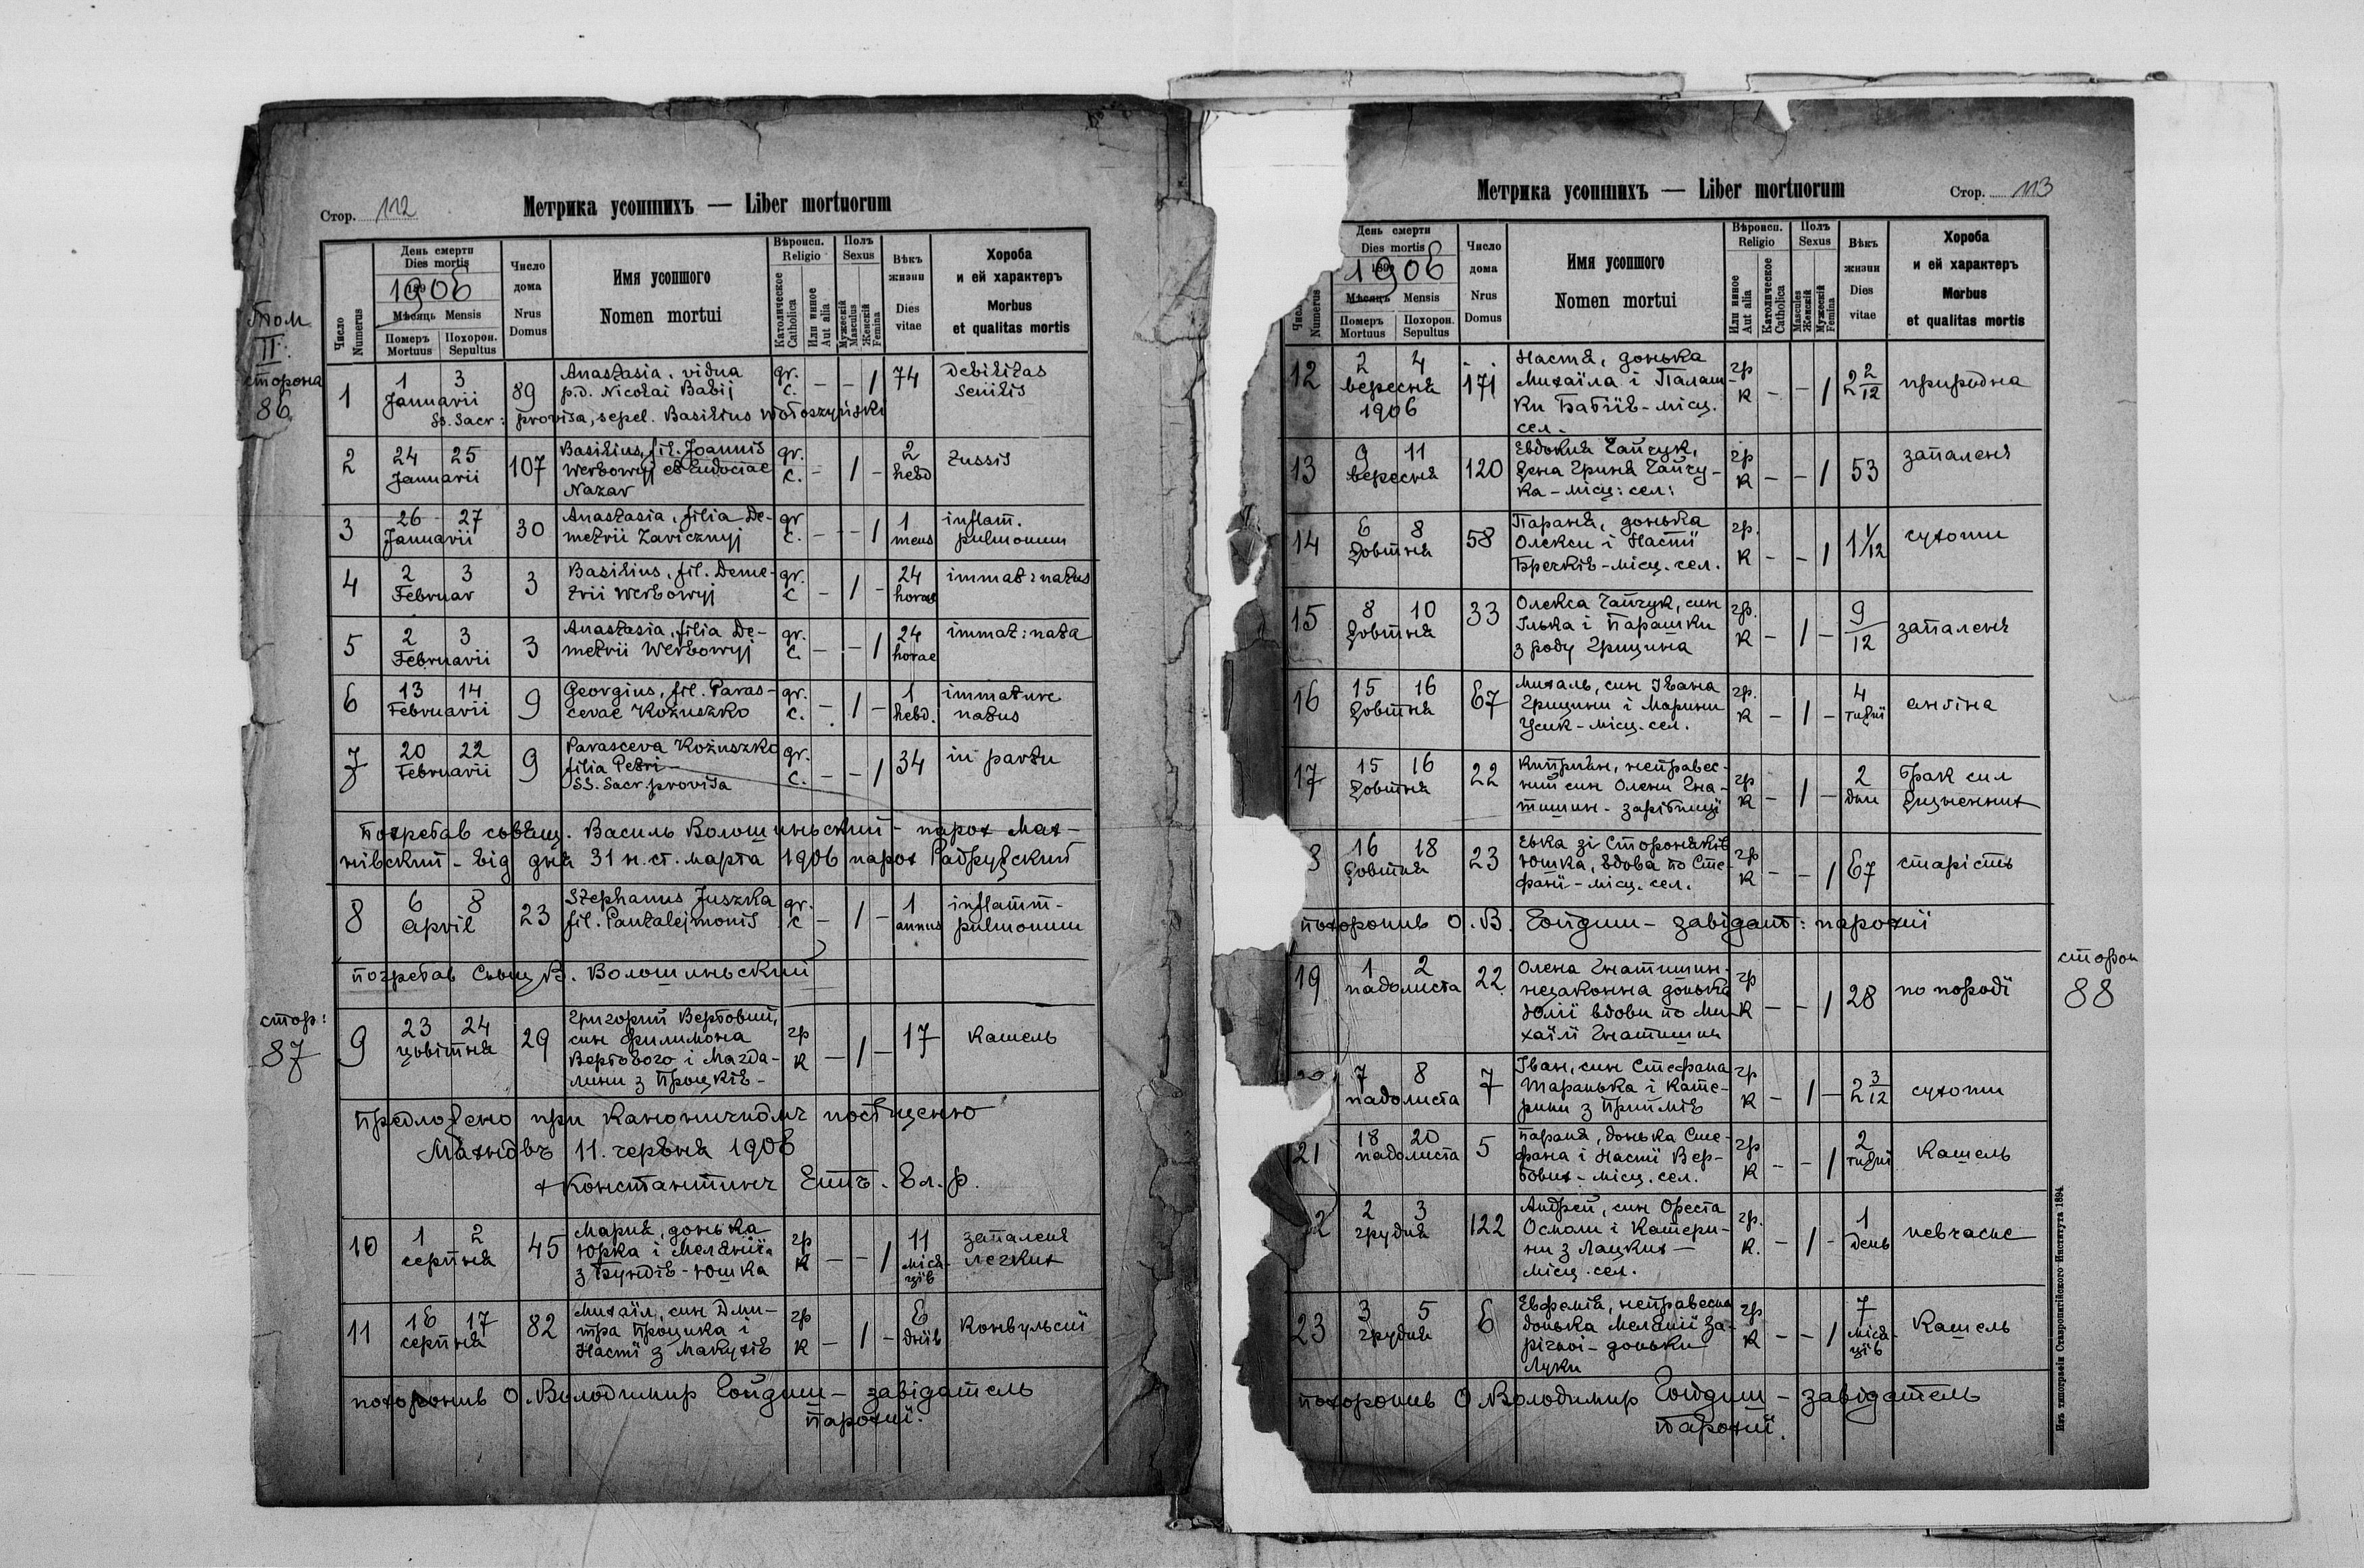 Стор. 112
Метрика усопшихъ — Liber mortuorum
Число Numerus
День смерти Dies mortis
1906
Мѣсяць Mensis
Померъ Mortuus
Похорон. Sepultus
Число дома Nrus Domus
Имя усопшого Nomen mortui
Вѣроисп. Religio
Католическое Catholica
Или инное Aut alia
Полъ Sexus
Мужескій Masculus
Женскій Femina
Вѣкъ жизни Dies vitae
Хороба и ей характеръ Morbus et qualitas mortis
Том II.
сторона 86
1 | 1 3 Januarii | 89 | Anastasia, vidua p.d. Nicolai Babij | gr. c. | – | – | 1 | 74 | Debilitas senilis
SS. Sacr: provisa, sepel. Basilius Wołoszyński
2 | 24 25 Januarii | 107 | Basilius, fil. Joannis Werbowyj et Eudociae Nazar | gr. c. | – | 1 | – | 2 hebd | tussis
3 | 26 27 Januarii | 30 | Anastasia, filia Demetrii Zavicznyj | gr c. | – | – | 1 | 1 mens | inflam. pulmonum
4 | 2 3 Februar | 3 | Basilius, fil. Demetrii Werbowyj | gr. c | – | 1 | – | 24 horae | immat: natus
5 | 2 3 Februarii | 3 | Anastasia, filia Demetrii Werbowyj | gr. c. | – | – | 1 | 24 horae | immat: nata
6 | 13 14 Februarii | 9 | Georgius, fil. Parascevae Kożuszko | gr. c. | – | 1 | – | 1 hebd. | immature natus
7 | 20 22 Februarii | 9 | Parasceva Kożuszko filia Petri – SS. Sacr. provisa | gr. c. | – | – | 1 | 34 | in partu
погребав съвящ. Василь Волошиньский – парох Мах-
нівский – від дня 31 н. ст. марта 1906 парох Радружский
8 | 6 8 April | 23 | Stephanus Juszka fil. Pantalejmonis | gr. c | – | 1 | – | 1 annus | inflamm. pulmonum
погребав Съвящ В. Волошиньский
стор: 87
9 | 23 24 цвітня | 29 | Григорий Вербовий, син Филимона Вербового і Магдалини з Процків – | гр к | – | 1 | – | 17 | кашель
Предложено при каноничномъ посѣщенью
Махновъ 11. червня 1906
+ Константинъ Епп. Ел. р.
10 | 1 2 серпня | 45 | Мария, донька Юрка і Меланиї з Бундів – Юшка | гр к | – | – | 1 | 11 місяців | запаленя легких
11 | 16 17 серпня | 82 | Михаіл, син Дмитра Процика і Насті з Макухів | гр к | – | 1 | – | 6 днів | конвульсиї
похоронив О. Володимир Гойдиш – завідатель
парохиї.
Метрика усопшихъ — Liber mortuorum
Стор. 113
Число Numerus
День смерти Dies mortis
1906
Мѣсяць Mensis
Померъ Mortuus
Похорон. Sepultus
Число дома Nrus Domus
Имя усопшого Nomen mortui
Вѣроисп. Religio
Или инное Aut alia
Католическое Catholica
Полъ Sexus
Masculus Женскій
Мужескій Femina
Вѣкъ жизни Dies vitae
Хороба и ей характеръ Morbus et qualitas mortis
12 | 2 4 вересня 1906 | 171 | Настя, донька Михаіла і Палашки Бабіїв – місц. сел. | гр к | – | – | 1 | 2 2/12 | природна
13 | 9 11 вересня | 120 | Евдокия Гайчук, жена Гриня Гайчука – місц: сел: | гр к | – | – | 1 | 53 | запаленя
14 | 6 8 жовтня | 58 | Параня, донька Олекси і Насті Бречків – місц. сел. | гр. к | – | – | 1 | 1 1/12 | сухоти
15 | 8 10 жовтня | 33 | Олекса Гайчук, син Ілька і Парашки з роду Грицина | гр. к | – | 1 | – | 9/12 | запаленя
16 | 15 16 жовтня | 67 | Михаль, син Івана Грицини і Марини Усик – місц. сел. | гр. к | – | 1 | – | 4 тижні | ангіна
17 | 15 16 жовтня | 22 | Киприян, неправесний син Олени Гнатишин – зарібниці | гр к | – | 1 | – | 2 дни | брак сил жизненних
8 | 16 18 жовтня | 23 | Евка зі Стороняків Юшка, вдова по Стефанї – місц. сел. | гр к | – | – | 1 | 67 | старість
похоронив О. В. Гойдиш – завідат: парохиї
сторон 88
19 | 1 2 падолиста | 22 | Олена Гнатишин незаконна донька Юлиї вдови по Михаілї Гнатишин | гр к | – | – | 1 | 28 | по породї
20 | 7 8 падолиста | 7 | Іван, син Стефана Шаранька і Катерини з Приймів | гр к | – | 1 | – | 2 3/12 | сухоти
21 | 18 20 падолиста | 5 | Параня, донька Стефана і Насті Вербових – місц. сел. | гр к | – | – | 1 | 2 тижні | кашель
2 | 2 3 грудня | 122 | Андрей, син Ореста Осмоли і Катерини з Лацких – місц. сел. | гр. к. | – | 1 | – | 1 день | невчасне
23 | 3 5 грудня | 6 | Евфемія, неправесна донька Меланиї Зарічної – доньки Луки | гр. к | – | – | 1 | 7 місяців | кашель
похоронив О Володимир Гойдиш – завідатель
парохиї.
Изъ типографіи Ставропигійского Института 1894